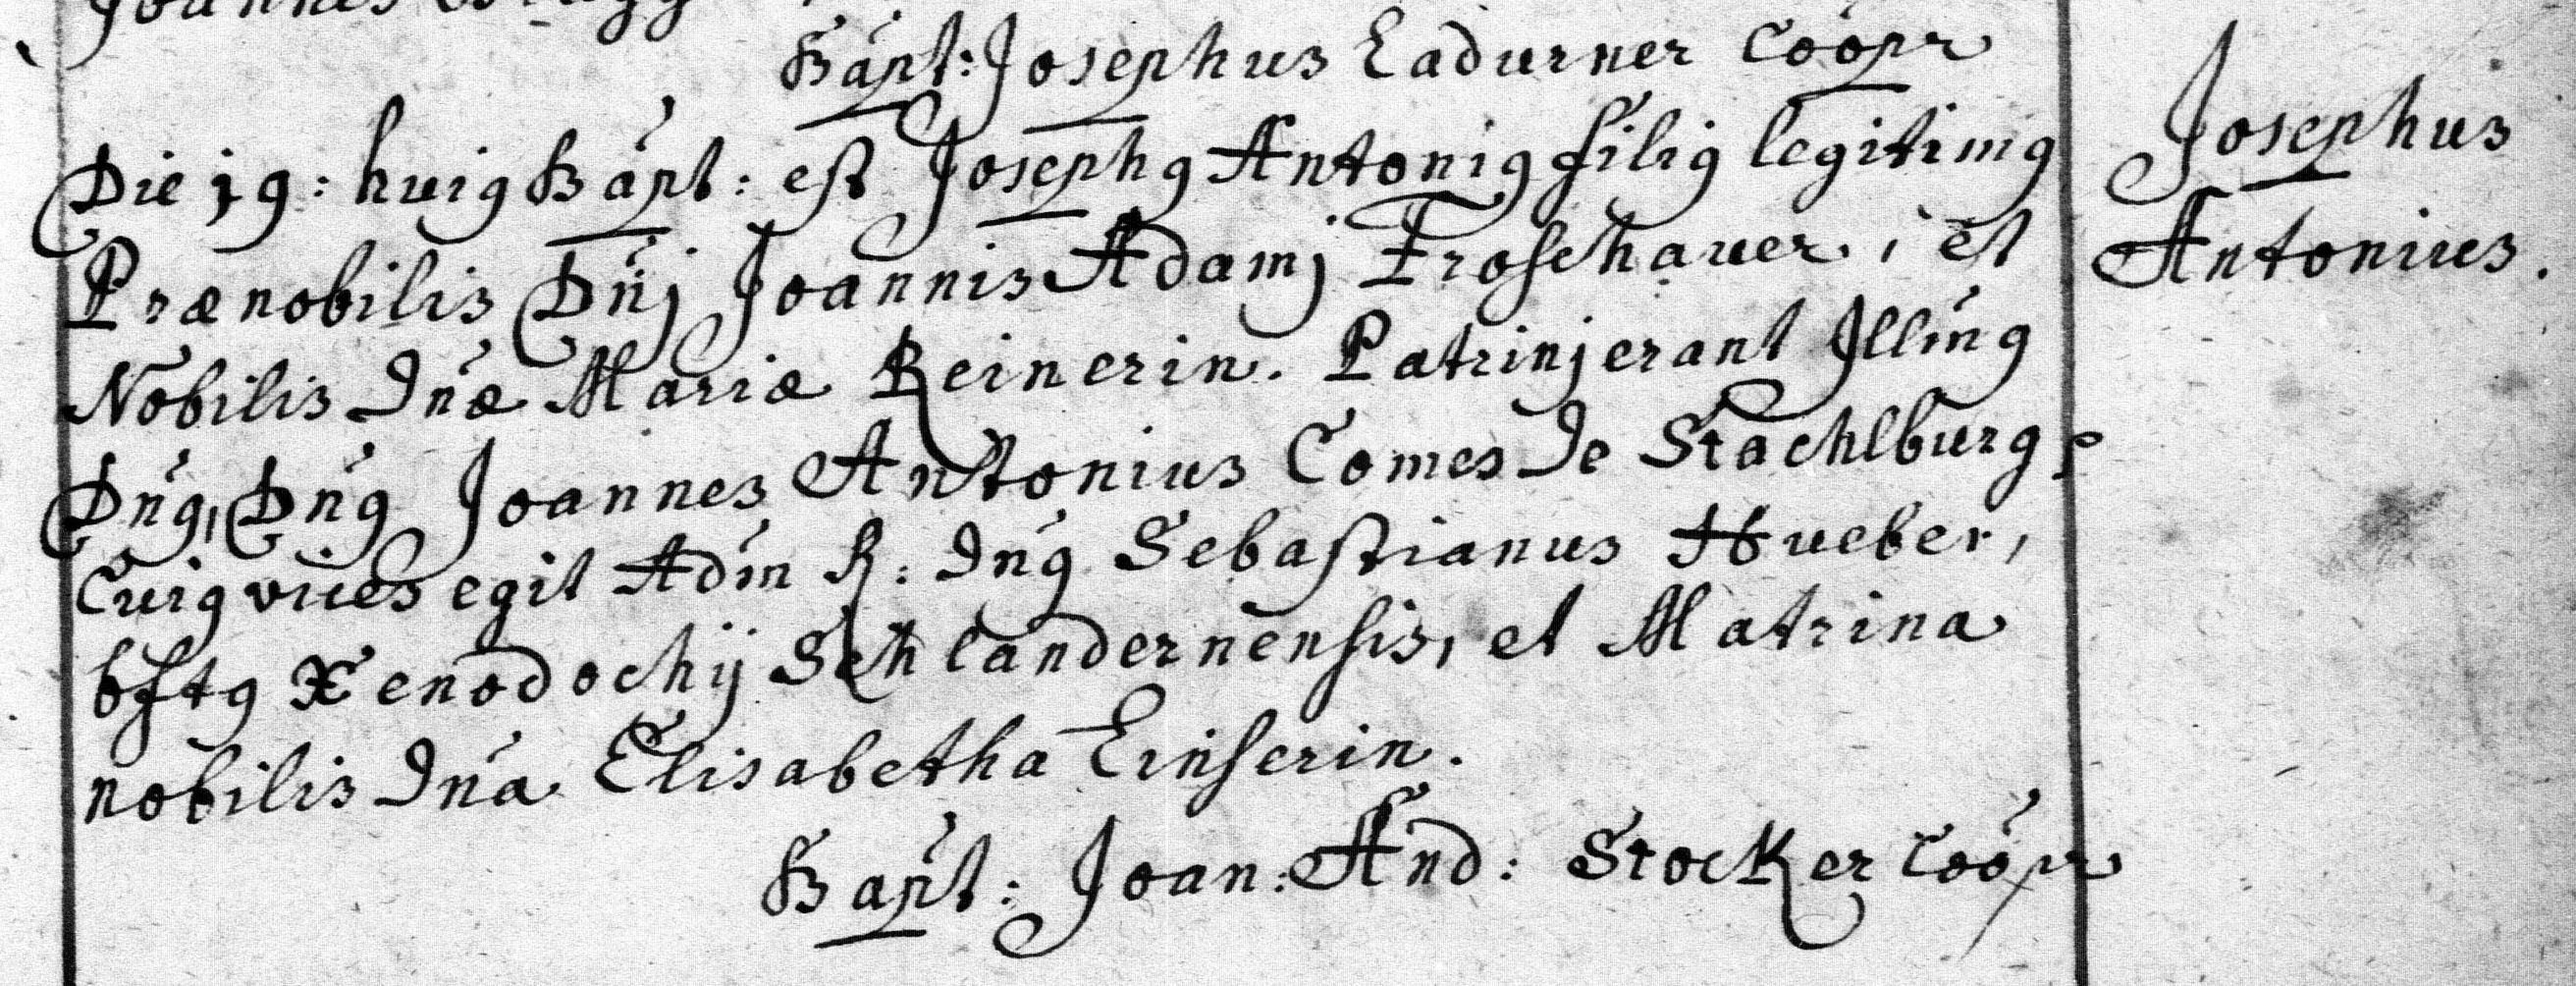 Bapt: Josephus Ladurner Coopr
Die 19: huig Bapt: est Josephg Antonig filig legitimg
Prænobilis Dnj Joannis Adamj Froschauer, et
Nobilis Dnæ Mariæ Reinerin. Patrinj erant Illmg
Dng, Dng Joannes Antonius Comes de Stachlburg,
Cuig vices egit Adm R: Dng Sebastianus Hueber,
bftg Xenodochij Schlandernensis, et Matrina
nobilis Dna Elisabetha Einserin.
Bapt: Joan: And: Stocker Coopr
Josephus
Antonius.